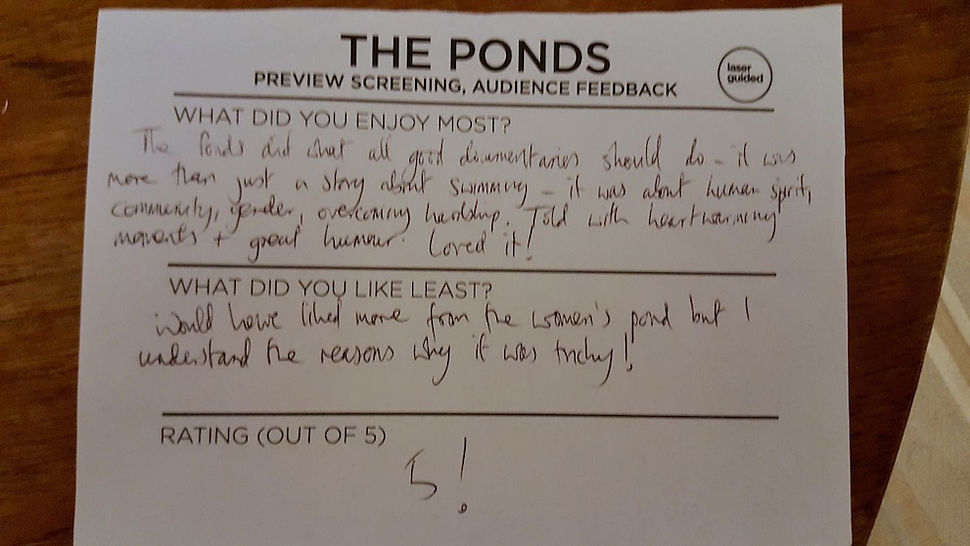 THE PONDS
laser
guided
PREVIEW SCREENING, AUDIENCE FEEDBACK
WHAT DID YOU ENJOY MOST?
The Ponds did what all good documentaries should do - it was
more than just a story about swimming - it was about human spirit,
community, gender, overcoming hardship. Told with heartwarming
moments + great humour. Loved it!
WHAT DID YOU LIKE LEAST?
Would have liked more from the women's pond but I
understand the reasons why it was tricky!
RATING (OUT OF 5)
5!